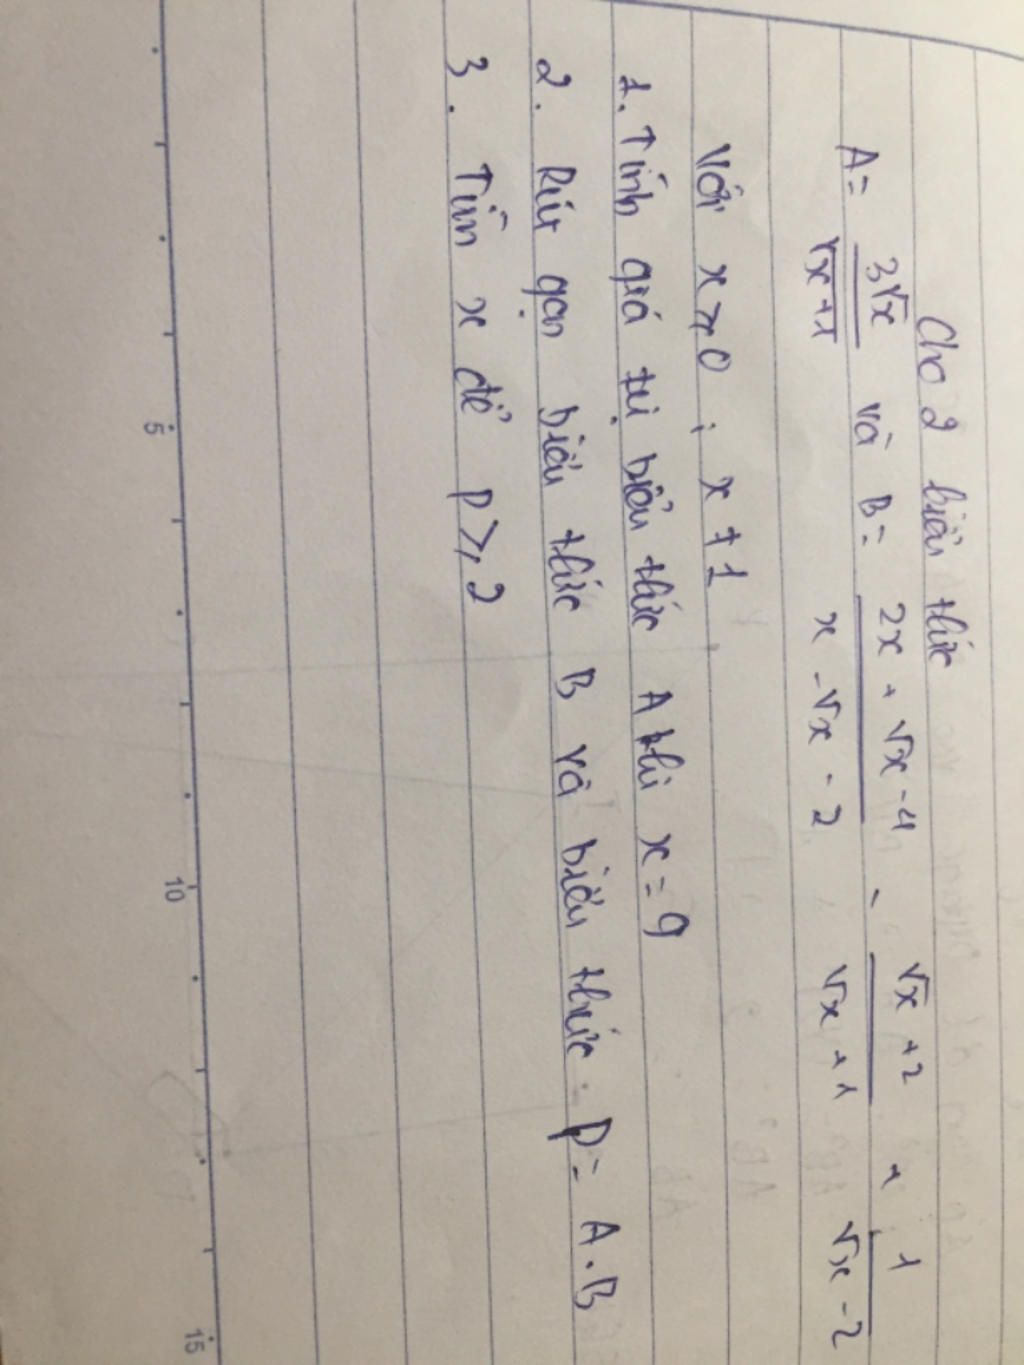 Cho 2 biểu thức
A = 3√x / √x+1 và B = 2x + √x - 4 / x - √x - 2 - √x + 2 / √x + 1 + 1 / √x - 2
Với x ≥ 0 ; x ≠ 1
1. Tính giá trị biểu thức A khi x = 9
2. Rút gọn biểu thức B và biểu thức P = A.B
3. Tìm x để P ≥ 2
5
10
15